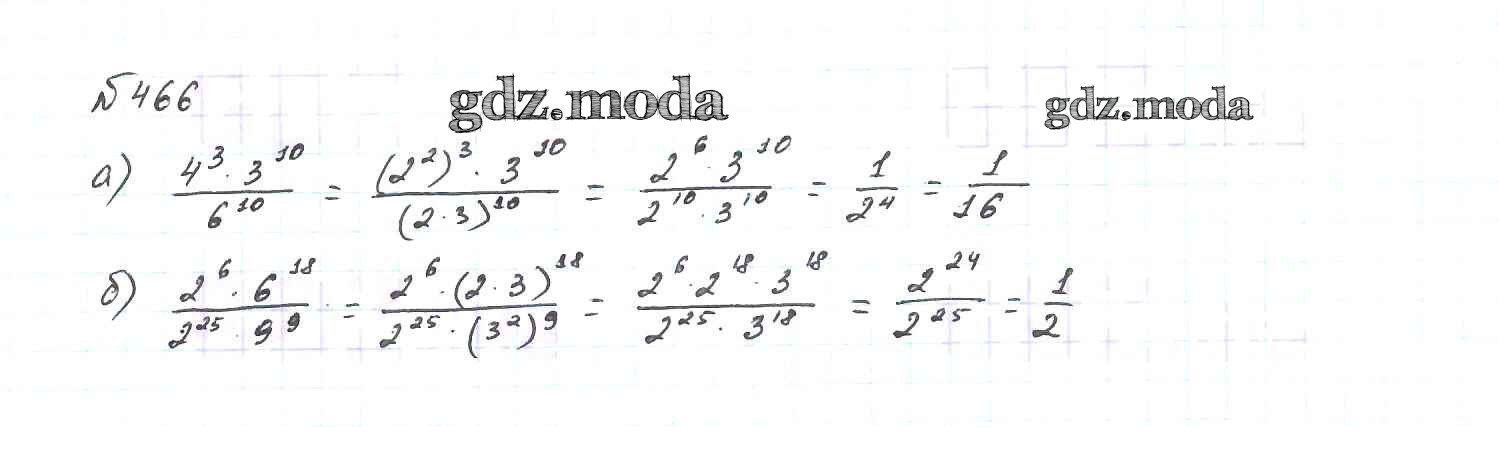 №466
gdz.moda
gdz.moda
а) 4³·3¹⁰/6¹⁰ = (2²)³·3¹⁰/(2·3)¹⁰ = 2⁶·3¹⁰/2¹⁰·3¹⁰ = 1/2⁴ = 1/16
б) 2⁶·6¹⁸/2²⁵·9⁹ = 2⁶·(2·3)¹⁸/2²⁵·(3²)⁹ = 2⁶·2¹⁸·3¹⁸/2²⁵·3¹⁸ = 2²⁴/2²⁵ = 1/2